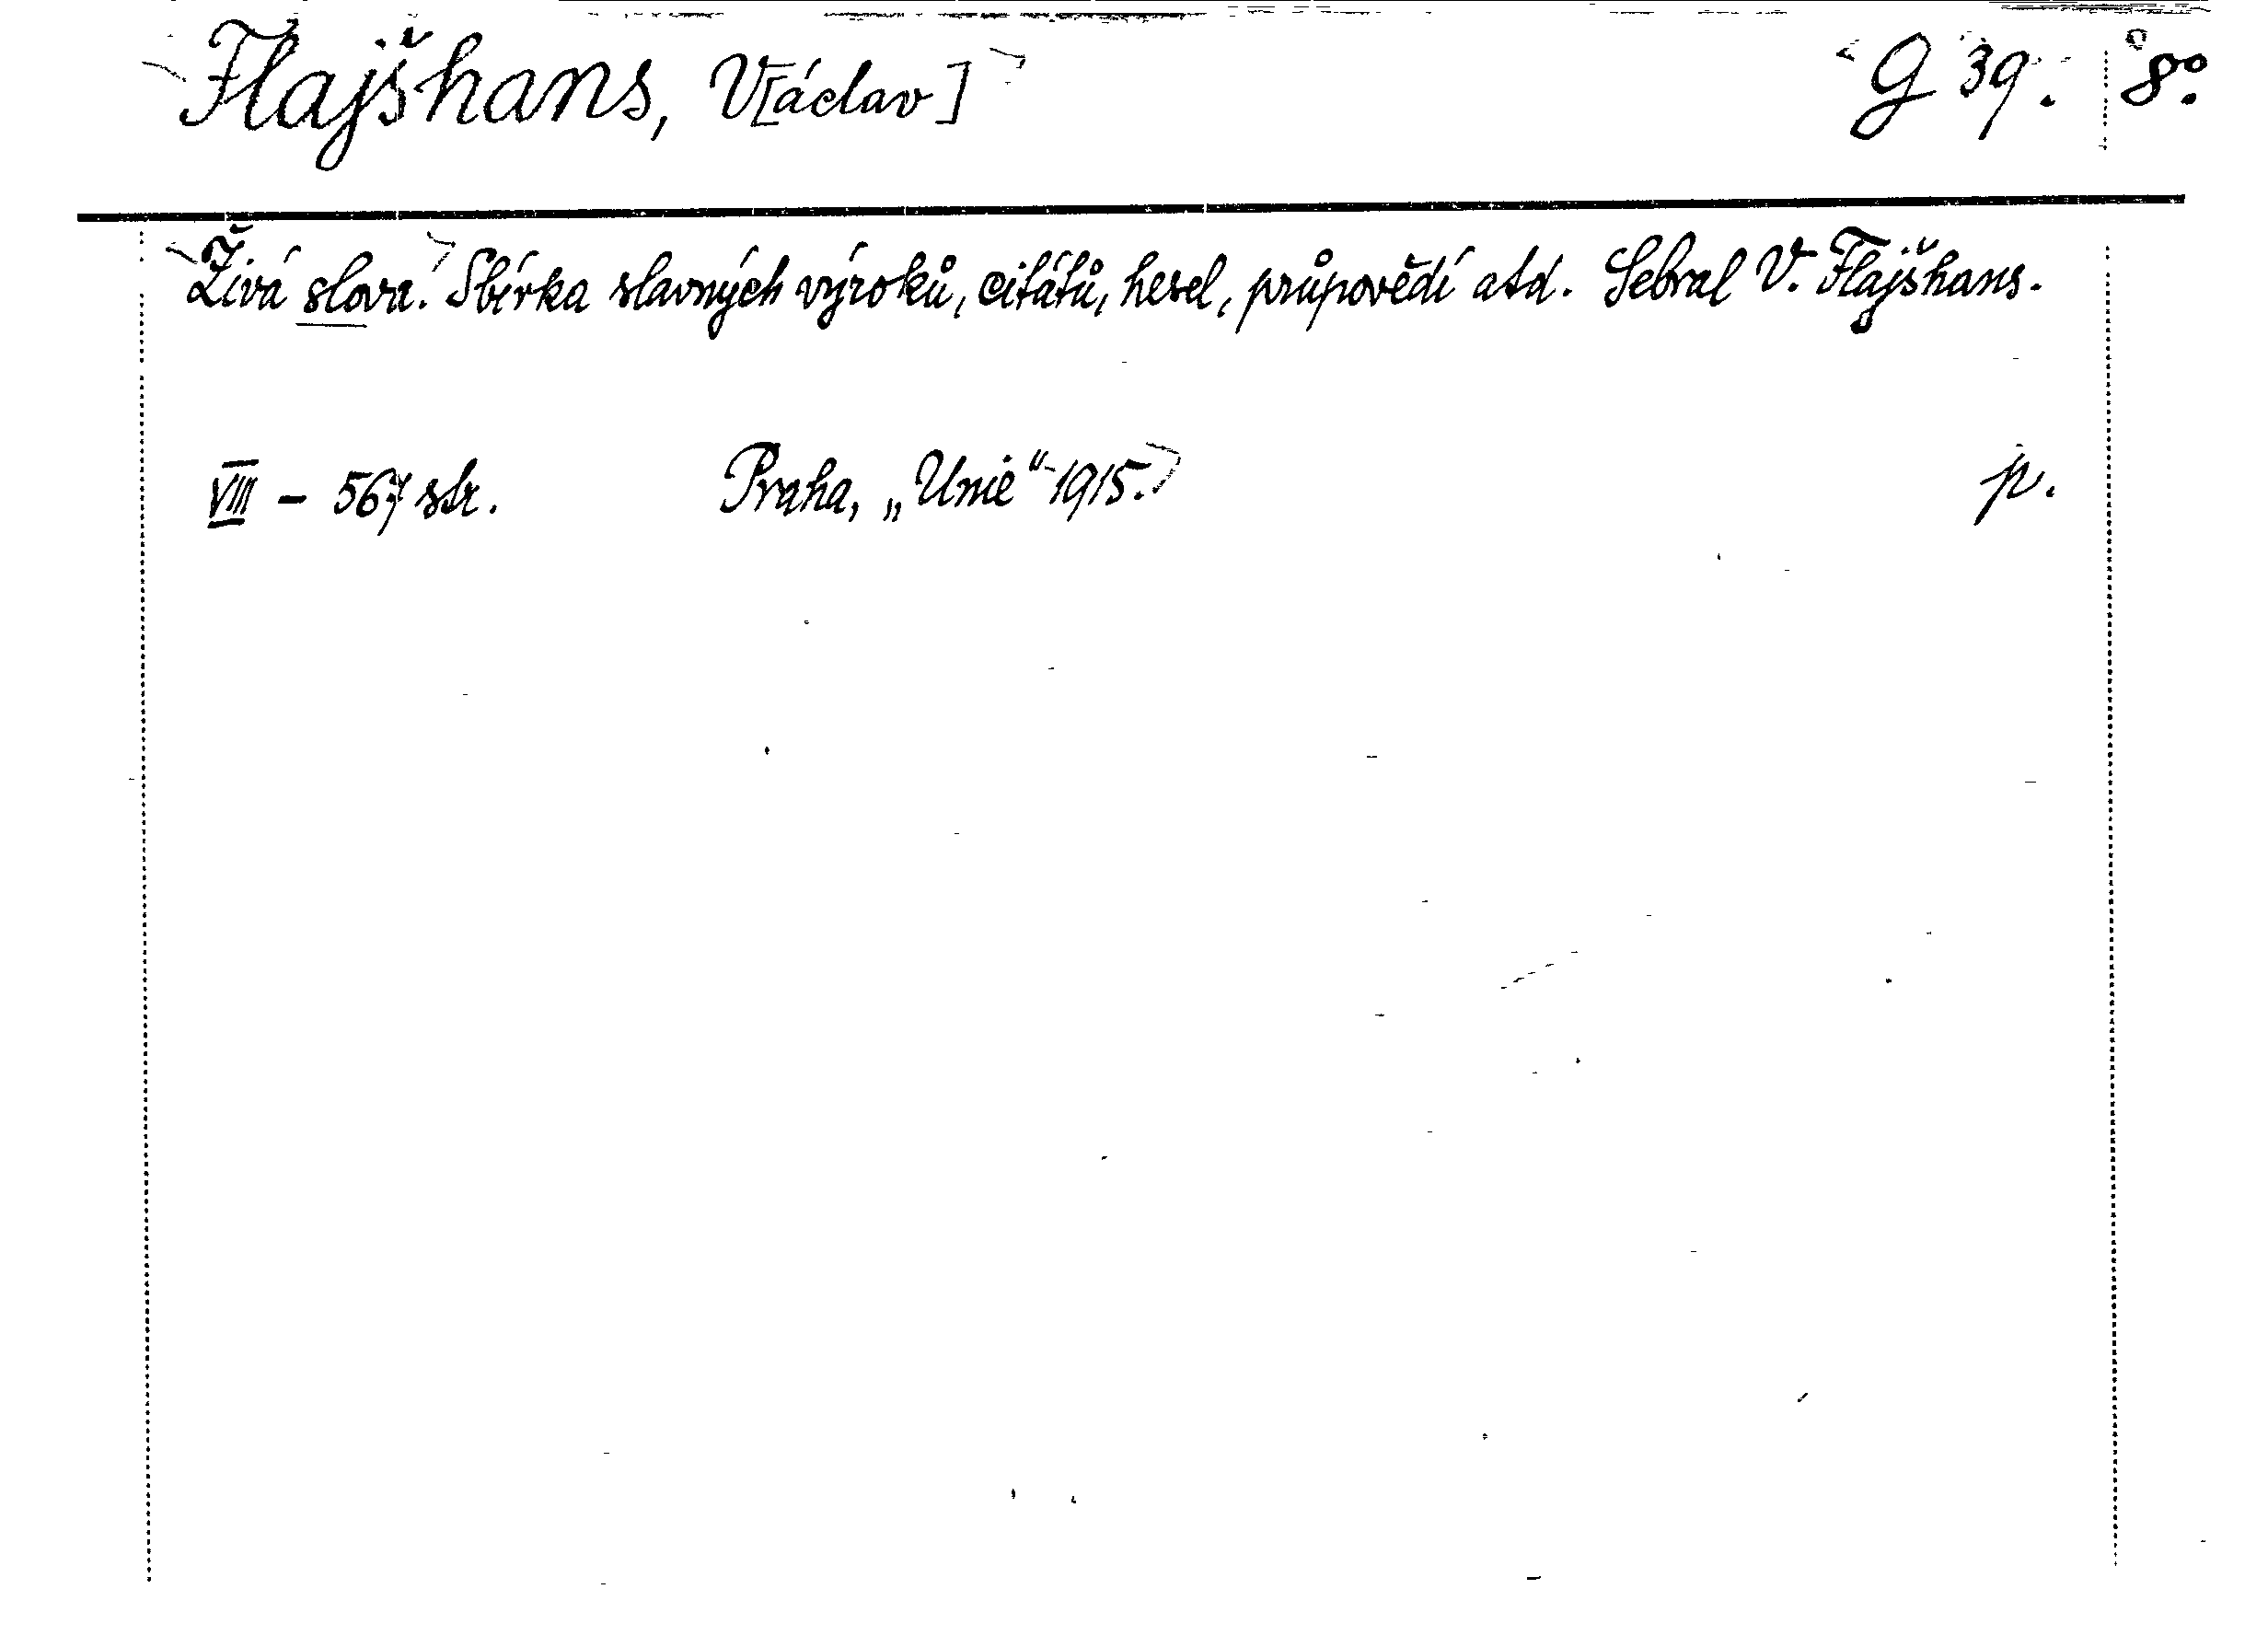 Flajšhans, V[áclav] G 39. 8°.
Živá slova. Sbírka slavných výroků, citátů, hesel, průpovědí atd. Sebral V. Flajšhans.
VIII - 567 str. Praha, „Unie" 1915. p.